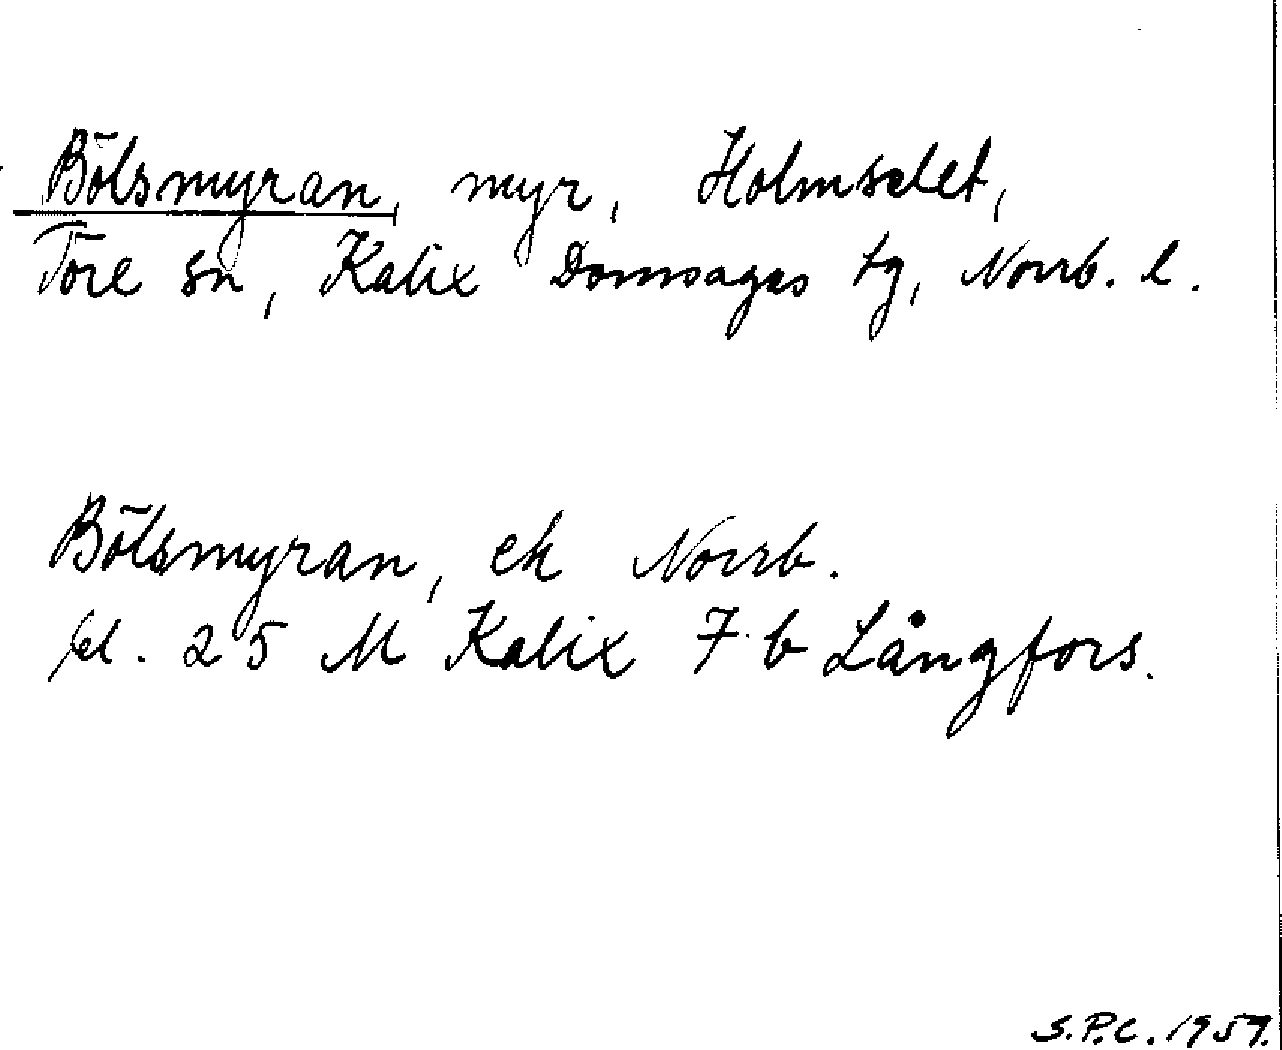 Bölsmyran, myr, Holmselet,
Töre sn, Kalix Domsagas tg, Norrb. l.
Bölsmyran, ek Norrb.
bl. 25 M Kalix 7 b Långfors.
S.P.C. 1959.